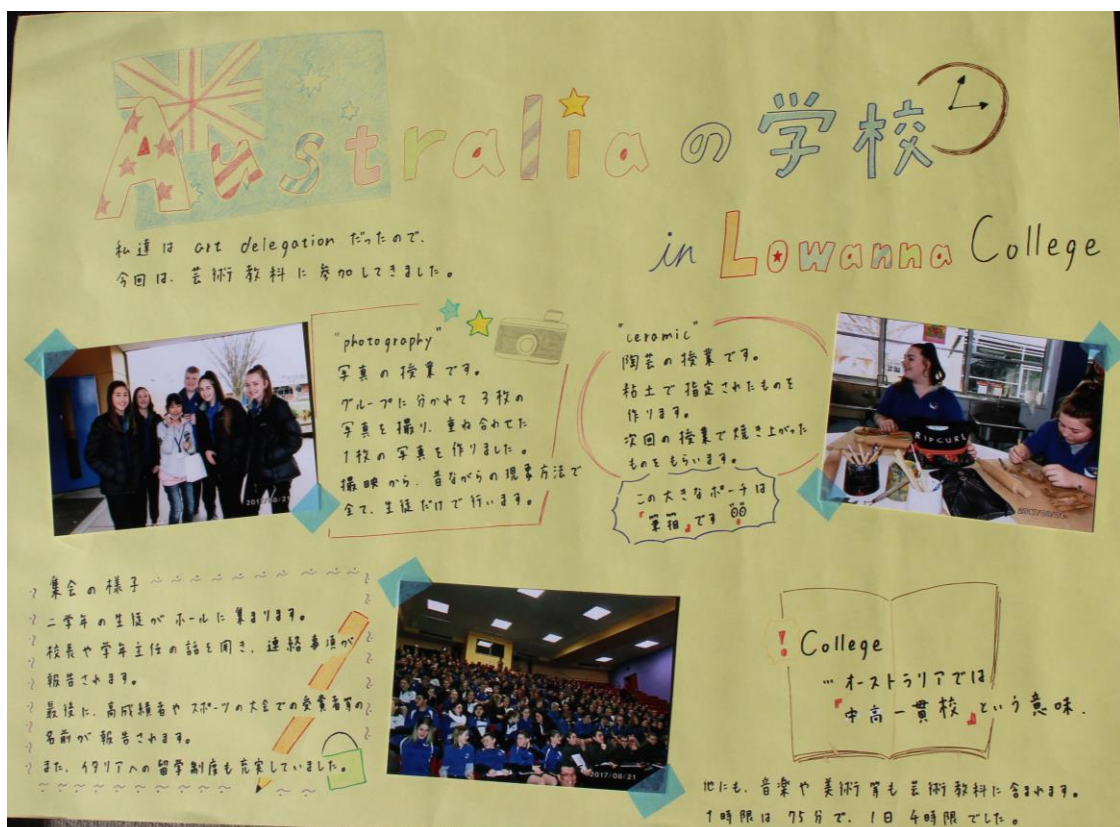 Australia の 学校
in Lowanna College
私達は art delegation だったので、
今回は、芸術教科に参加してきました。
"photography"
写真の授業です。
グループに分かれて 3枚の
写真を撮り、重ね合わせた
1枚の写真を作りました。
撮映から、昔ながらの現象方法で
全て、生徒だけで行います。
2017/08/21
"ceramic"
陶芸の授業です。
粘土で指定されたものを
作ります。
次回の授業で焼き上がった
ものをもらいます。
この大きなポーチは
『筆箱』です!!
RIPCURL
集会の様子
二学年の生徒がホールに集まります。
校長や学年主任の話を聞き、連絡事項が
報告されます。
最後に、高成績者やスポーツの大会での受賞者等の
名前が報告されます。
また、イタリアへの留学制度も充実していました。
2017/08/21
! College
… オーストラリアでは
『中高一貫校』という意味.
他にも、音楽や美術等も芸術教科に含まれます。
1時限は75分で、1日4時限でした。